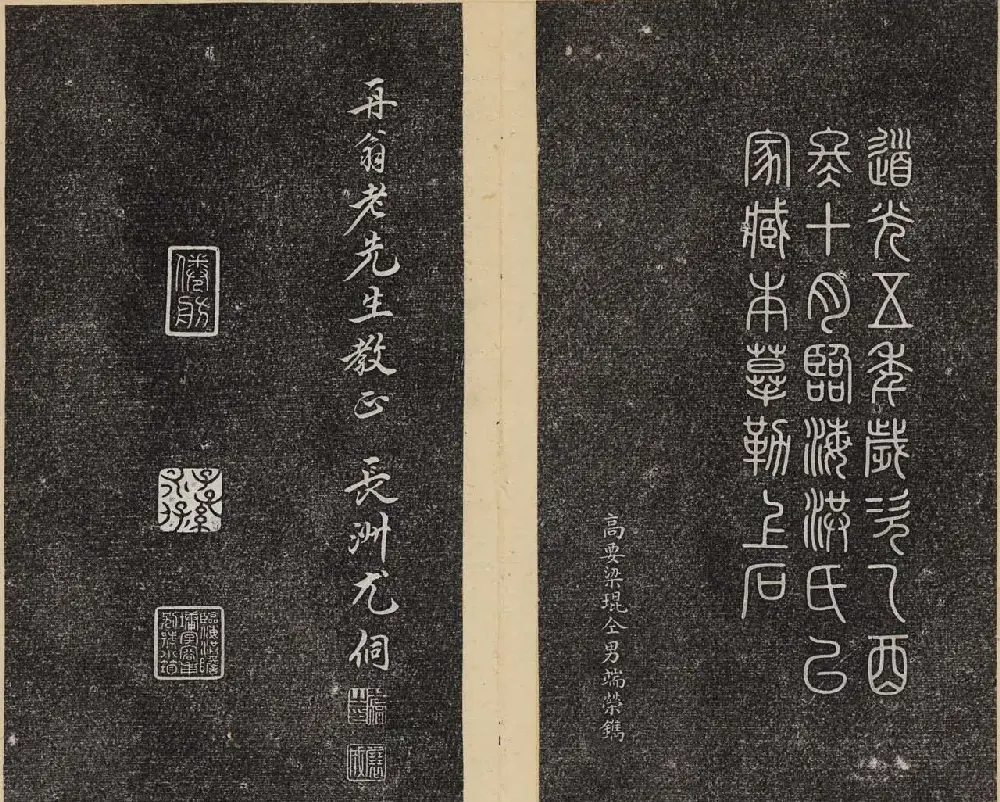 道光五年歲次乙酉
冬十月臨海洪氏以
家藏本摹勒上石
高要梁琨仝男端榮鐫
舟翁老先生教正 長洲尤侗
倦舫